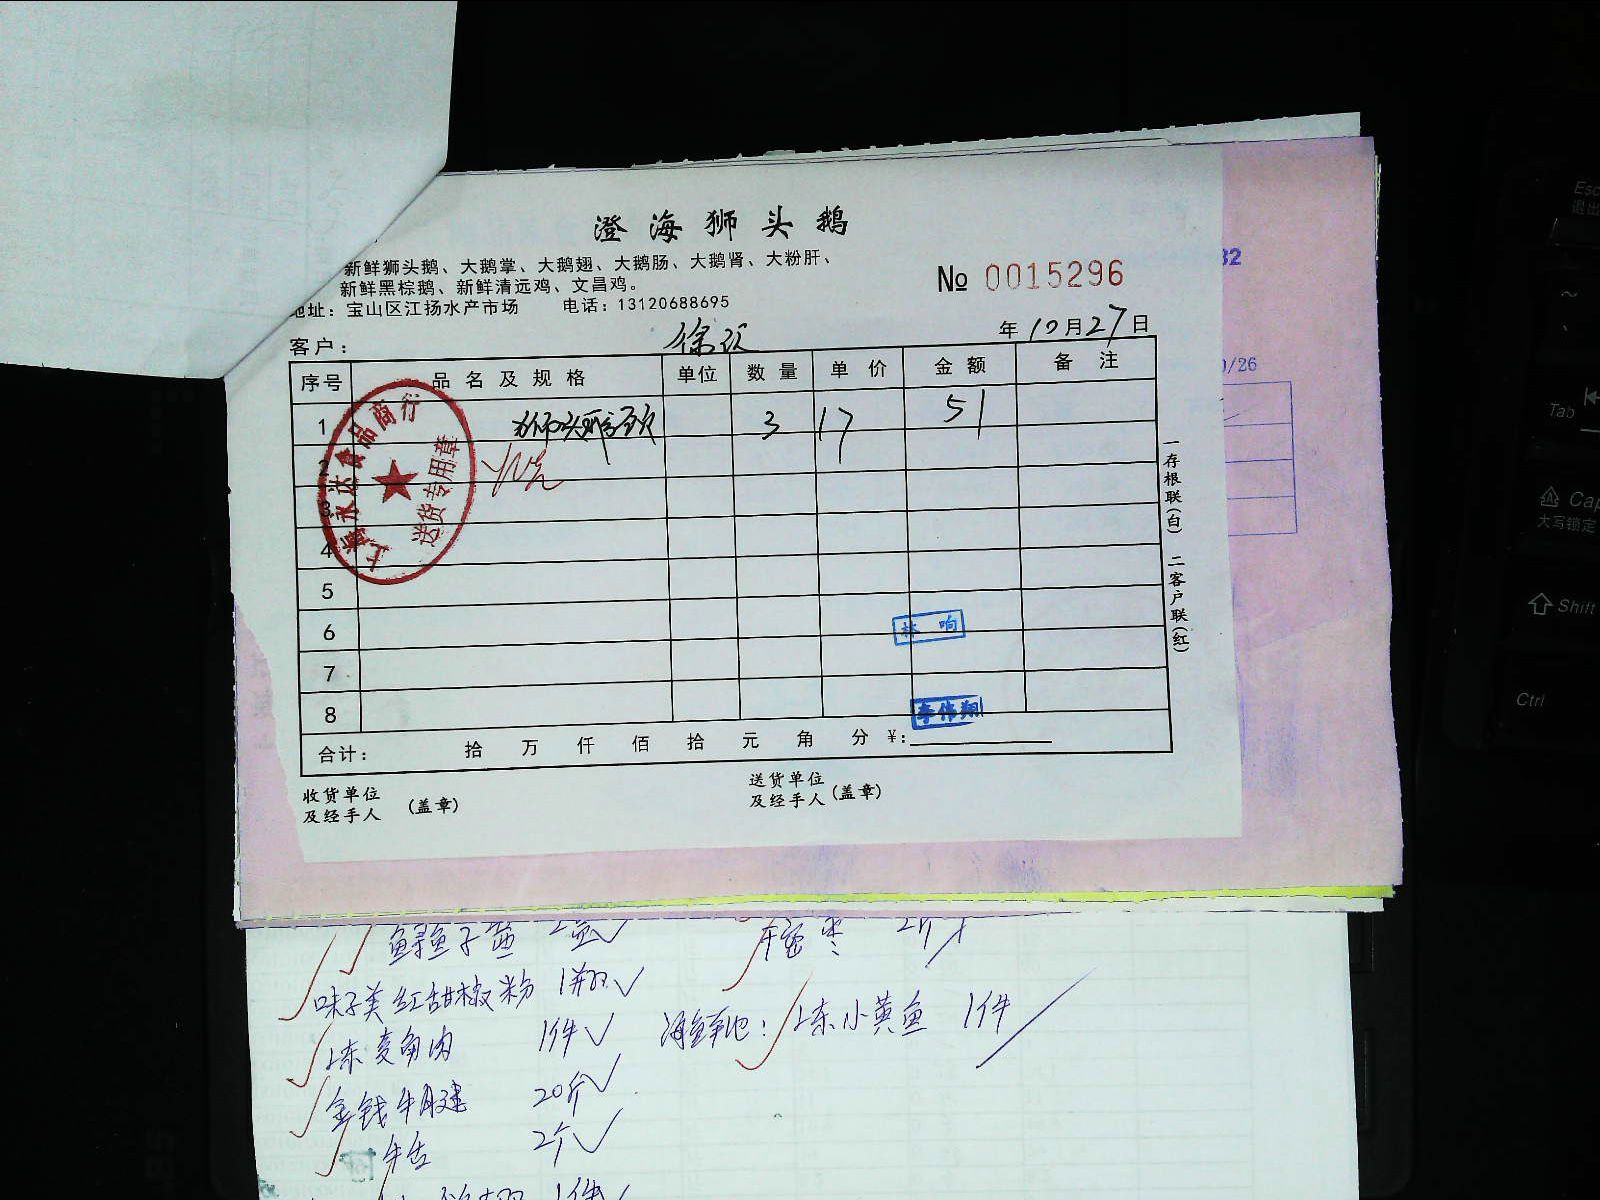 澄海狮头鹅
新鲜狮头鹅、大鹅掌、大鹅翅、大鹅肠、大鹅肾、大粉肝、
新鲜黑棕鹅、新鲜清远鸡、文昌鸡。
地址：宝山区江扬水产市场 电话：13120688695
№ 0015296
客户： 徐汇
年 10月27日
序号 品名及规格 单位 数量 单价 金额 备注
1 狮头鹅头 3 17 51
2
3
4
5
6
7
8
上海永达食品商行
送货专用章
林响
李伟翔
合计： 拾 万 仟 佰 拾 元 角 分 ¥：
收货单位
及经手人 (盖章)
送货单位
及经手人 (盖章)
一存根联(白) 二客户联(红)
32
0/26
鲟鱼子酱 2
味子美红甜椒粉 1瓶
1件
金钱牛腱 20斤
牛舌 2个
1件
蜜枣 2斤
小黄鱼 1件
Esc
退出
Tab
Cap
大写锁定
Shift
Ctrl